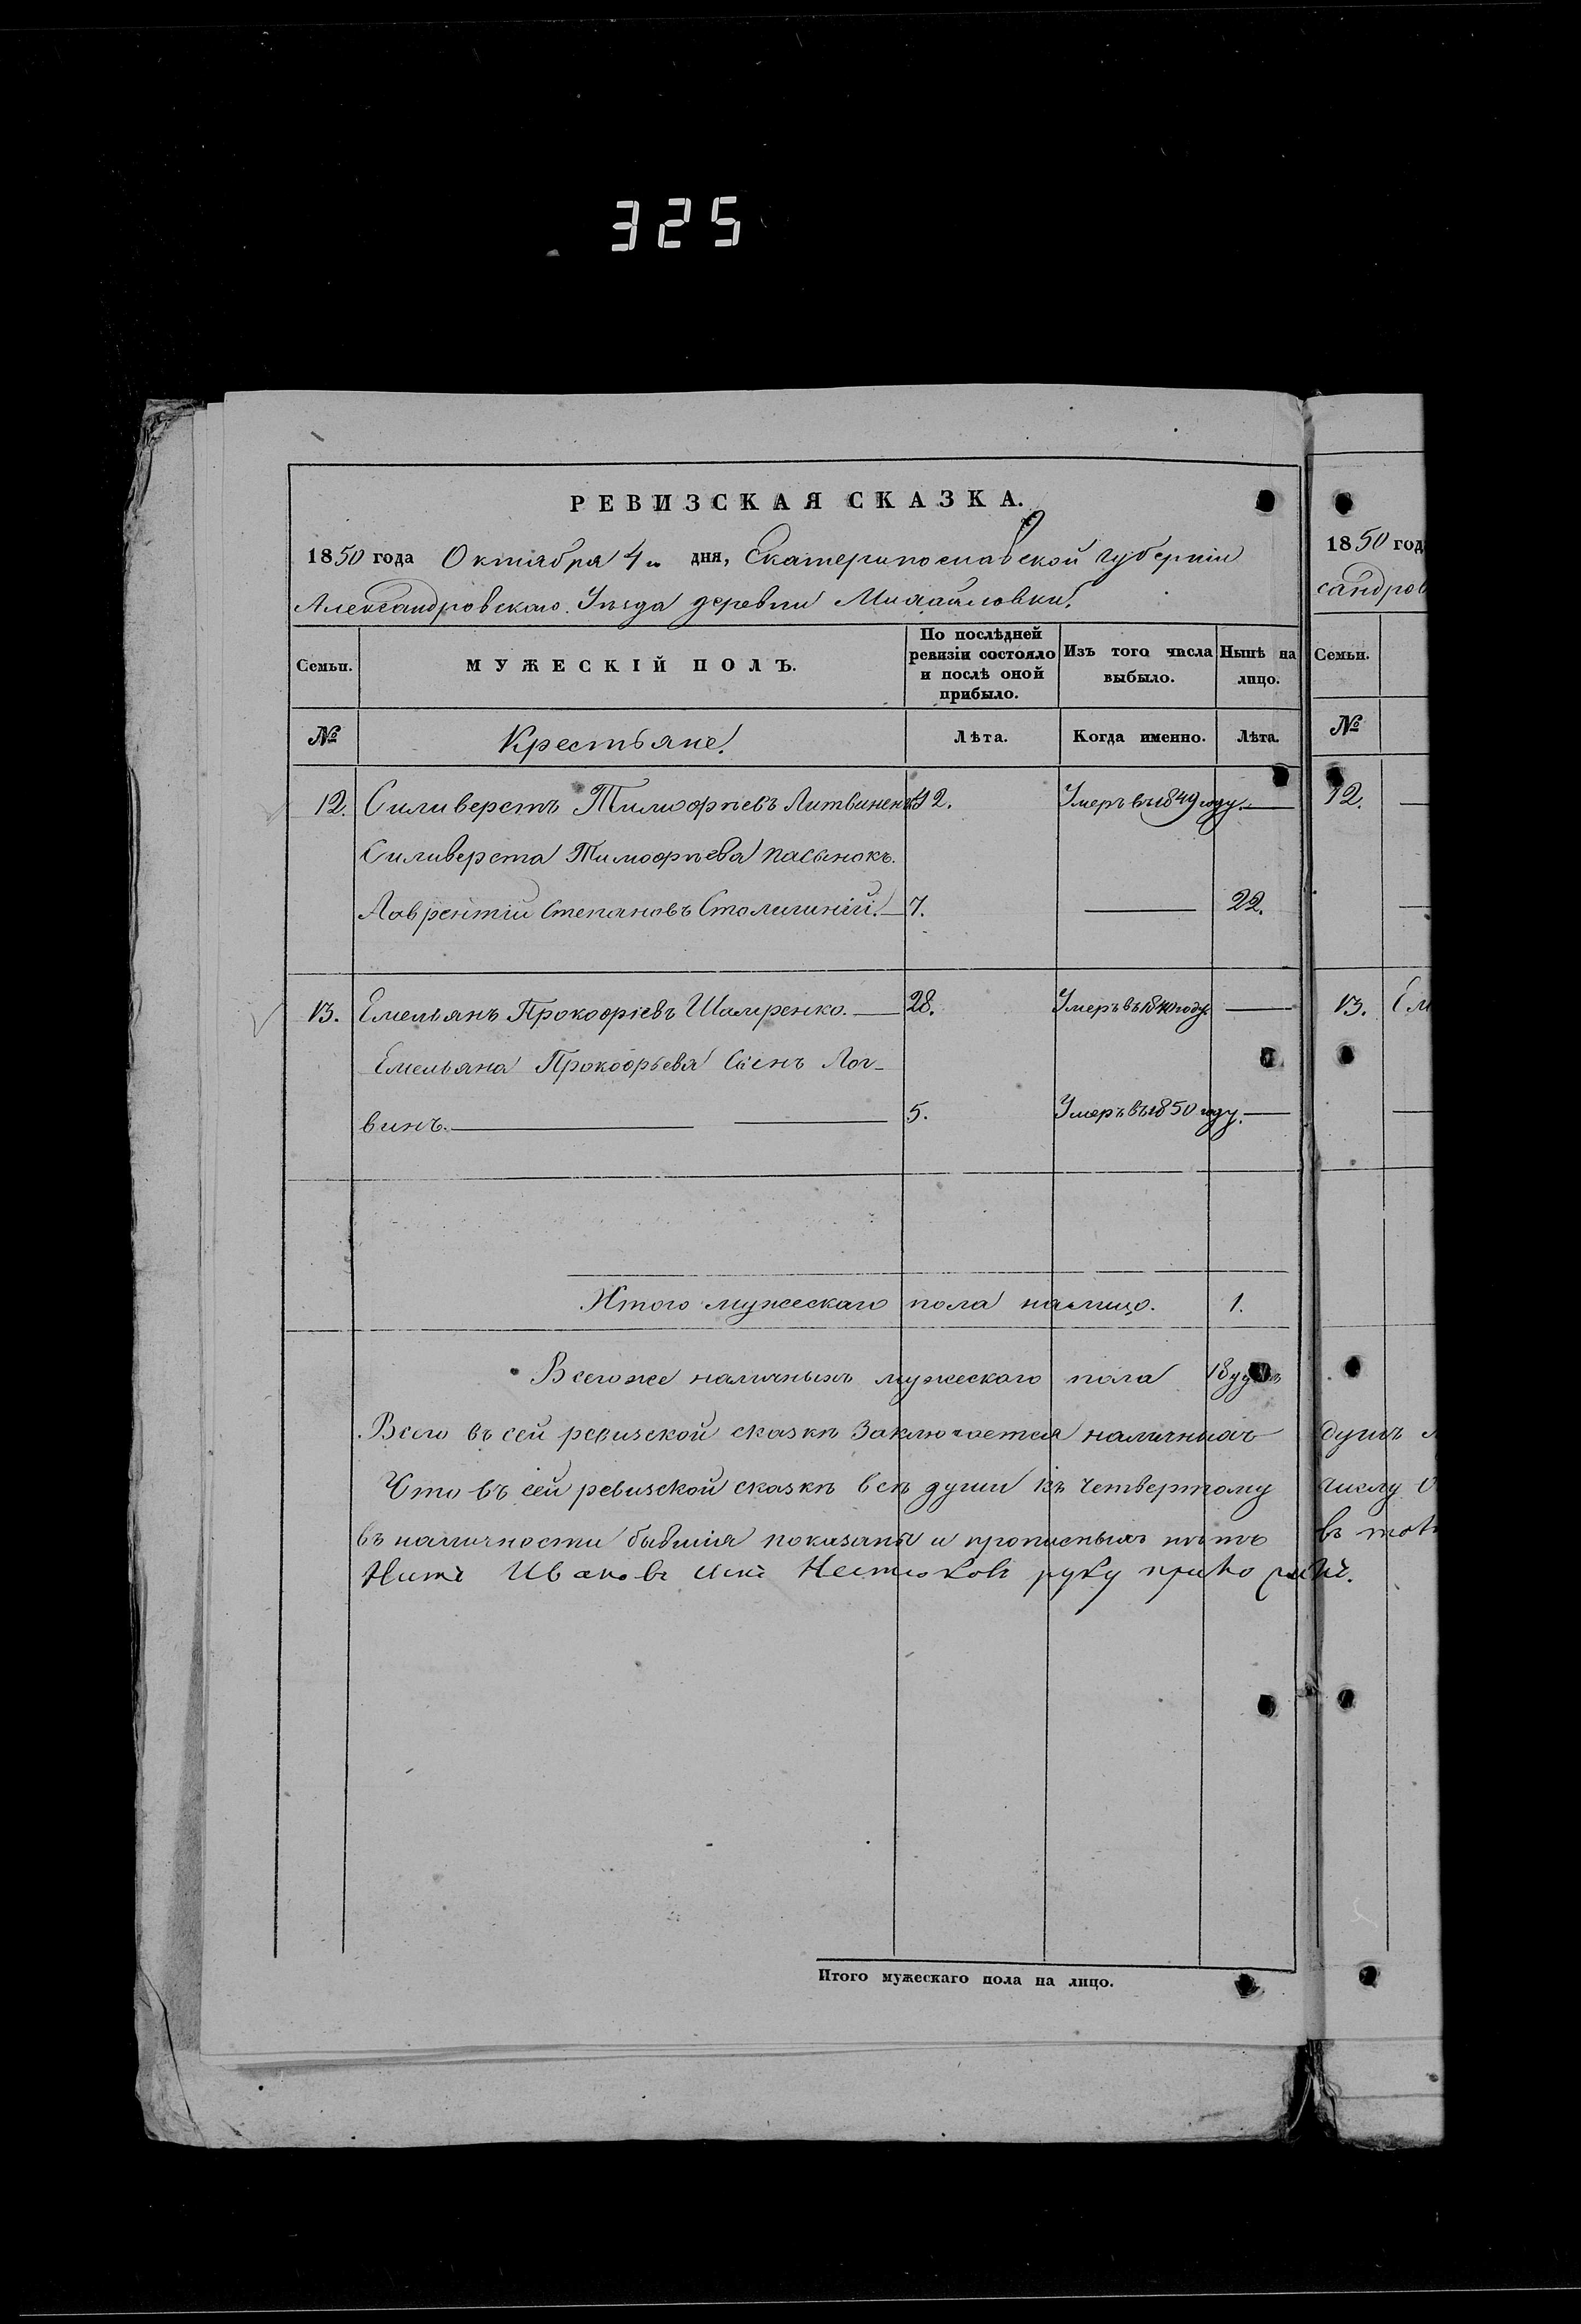 325
РЕВИЗСКАЯ СКАЗКА.
1850 года Октября 4го дня, Екатеринославской губерніи
Александровскаго Уѣзда деревни Михайловки.
Семьи.
МУЖЕСКІЙ ПОЛЪ.
По послѣдней ревизіи состояло и послѣ оной прибыло.
Изъ того числа выбыло.
Нынѣ на лицо.
№ Крестьяне. Лѣта. Когда именно. Лѣта.
12. Силиверстъ Тимофѣевъ Литвиненко 42. Умеръ въ 1849 году.
Силиверста Тимофѣева пасынокъ.
Лаврентій Степановъ 7. 22.
13. Емельянъ Прокофіевъ 28. Умеръ въ 1840 году
Емельяна Прокофьева Сынъ Лог-
винъ. 5. Умеръ въ 1850 году.
Итого мужескаго пола налицо. 1.
Всегоже наличныхъ мужескаго пола 18
Всего въ сей ревизской сказкѣ заключается наличныхъ
Что въ сей ревизской сказкѣ всѣ души къ четвертому
въ наличности бывшія показаны и прописныхъ нѣтъ
Ивановъ руку приложилъ.
Итого мужескаго пола на лицо.
1850 год
сандров
Семьи.
№
12.
13. Ем
душъ
числу
въ